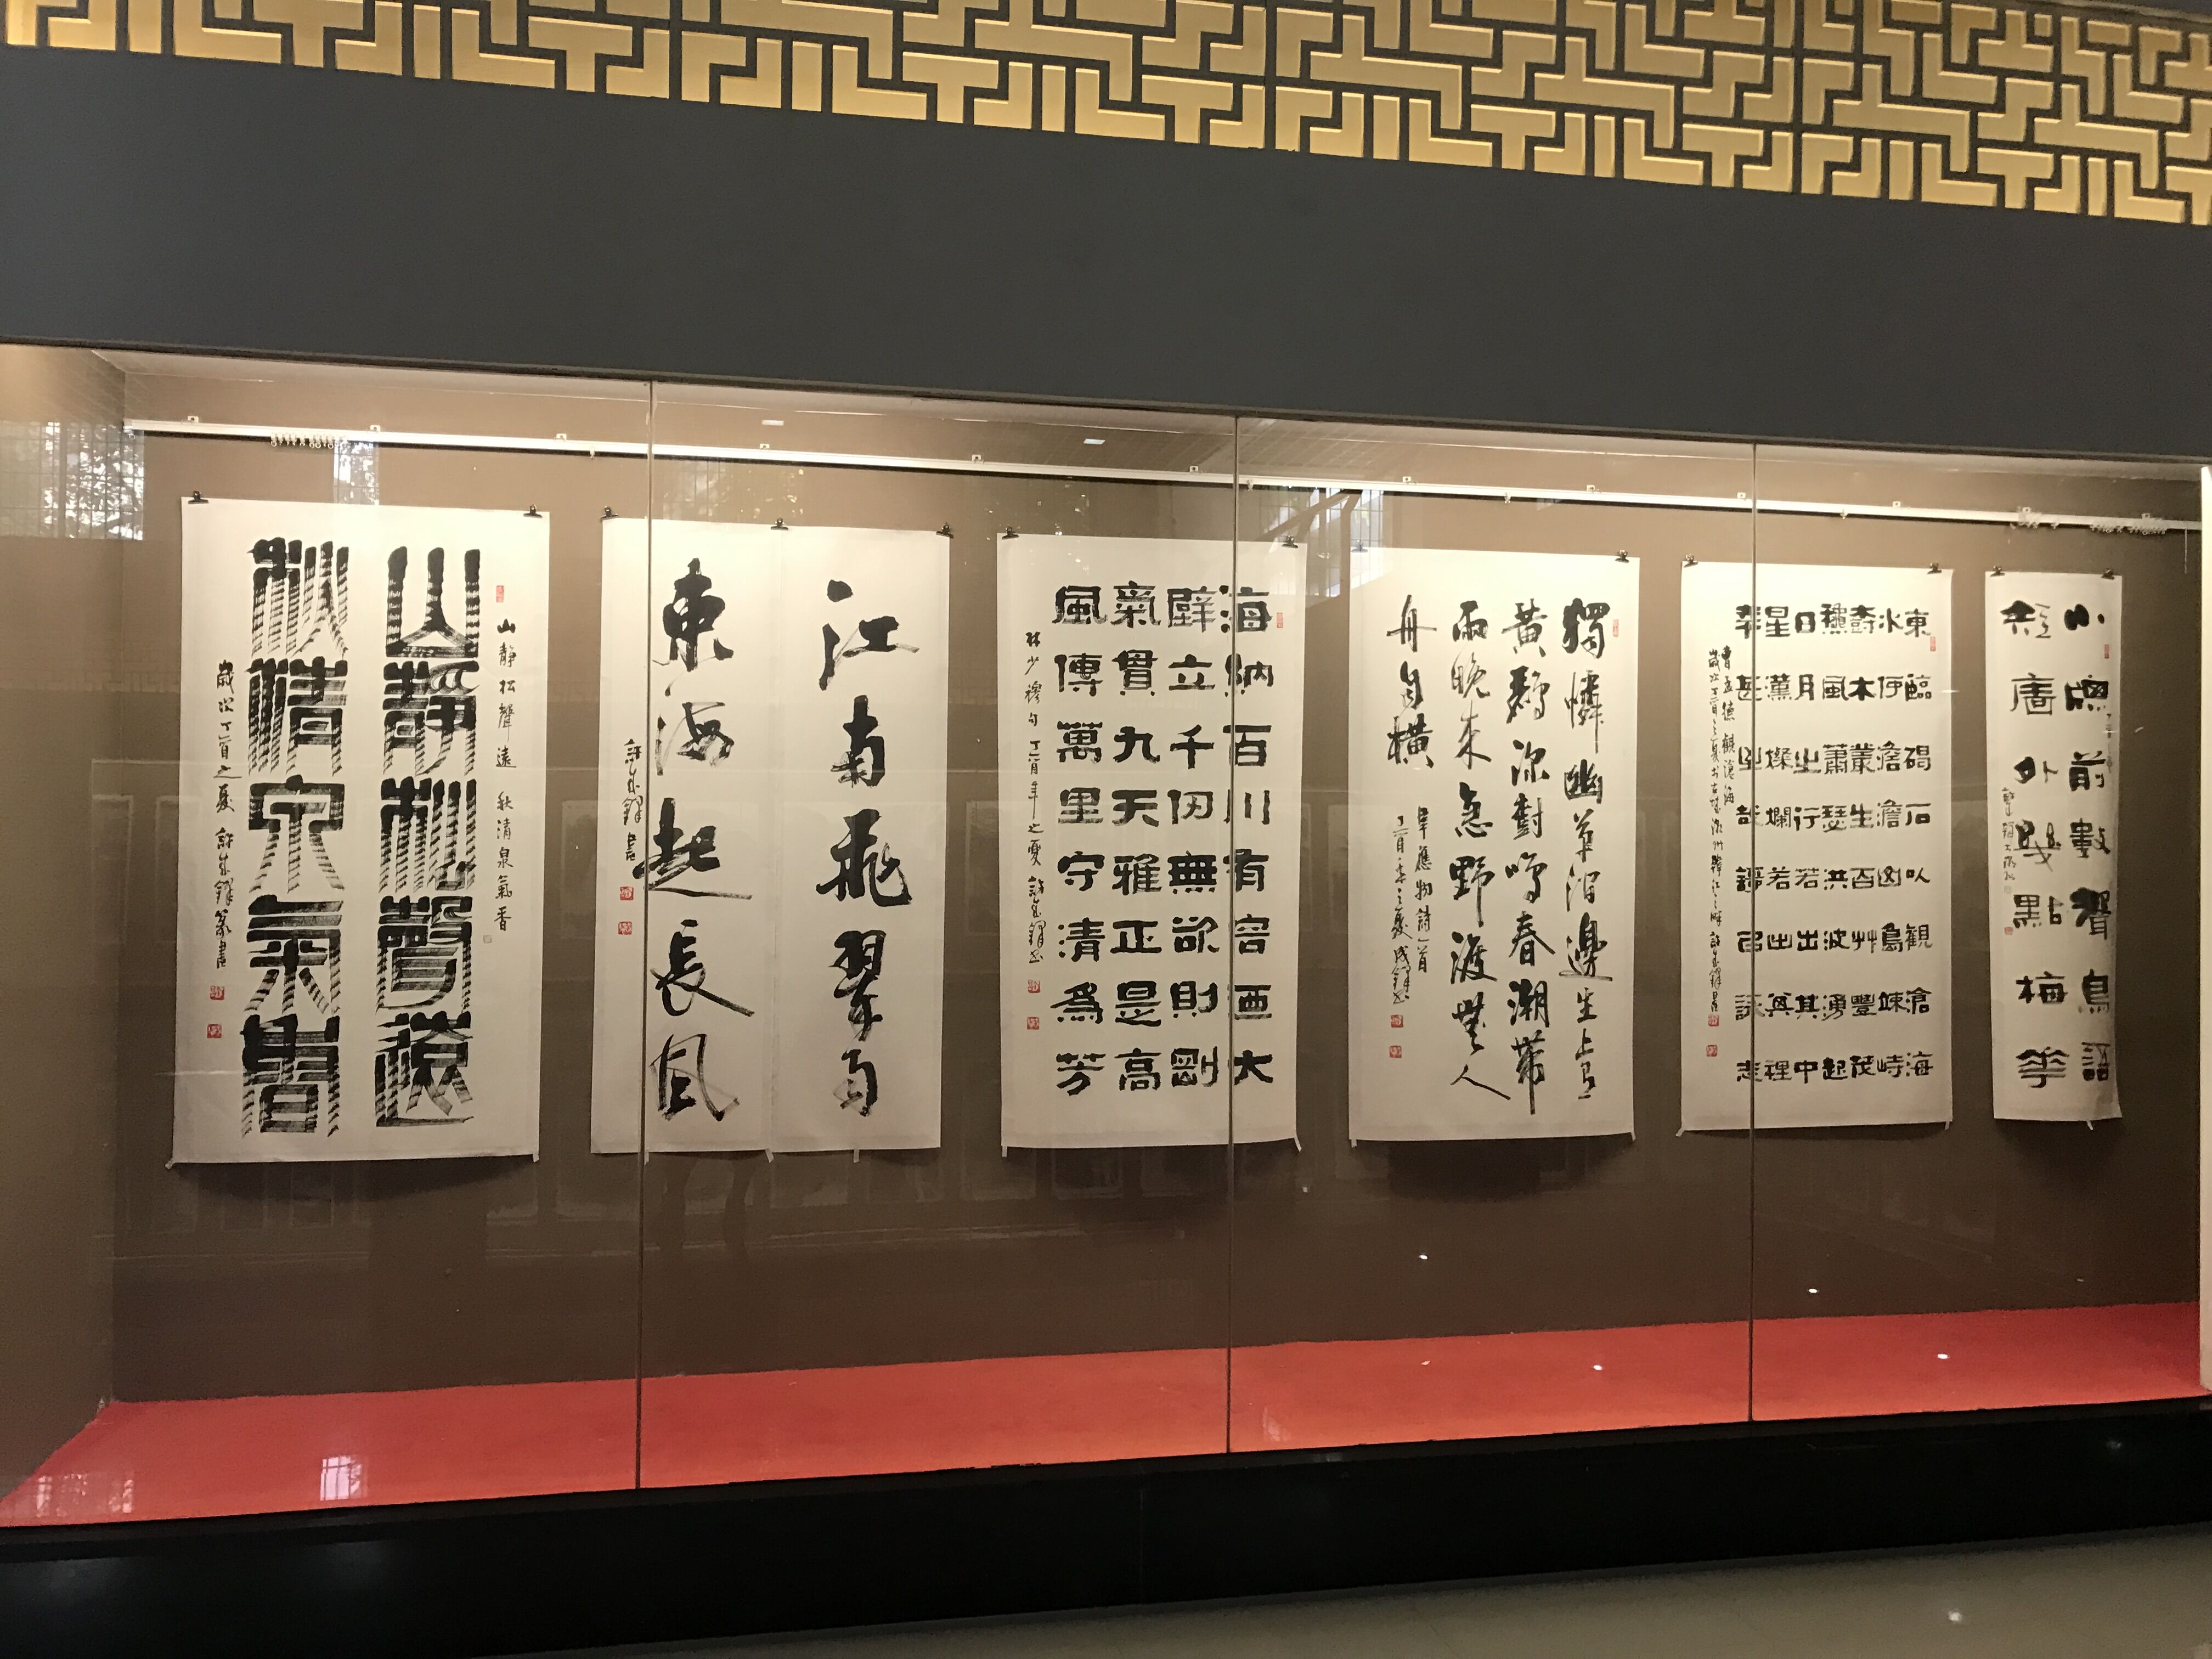 山靜松聲遠 秋清泉氣香
山靜松聲遠
秋清泉氣香
歲次丁酉之夏 許成鐸篆書
江南飛翠雨
東海起長風
許成鐸書
海納百川有容迺大
壁立千仞無欲則剛
氣貫九天雅正是高
風傳萬里守清為芳
林少穆句丁酉年之夏 許成鐸書
獨憐幽草澗邊生上有
黃鸝深樹鳴春潮帶
雨晚來急野渡無人
舟自橫
韋應物詩一首
丁酉季之夏成鐸書
東臨碣石以觀滄海
水何澹澹山島竦峙
樹木叢生百艸豐茂
穐風蕭瑟洪波湧起
日月之行若出其中
星漢燦爛若出其裡
幸甚至哉歌以詠志
曹孟德觀滄海
歲次丁酉之夏
小窗前數聲鳥語
短牆外幾點梅花